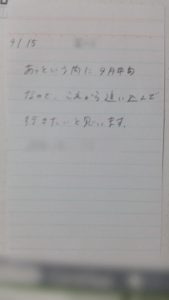 9/15
あっという間に9月中旬
なので、これから追い込んで
行きたいと思います。